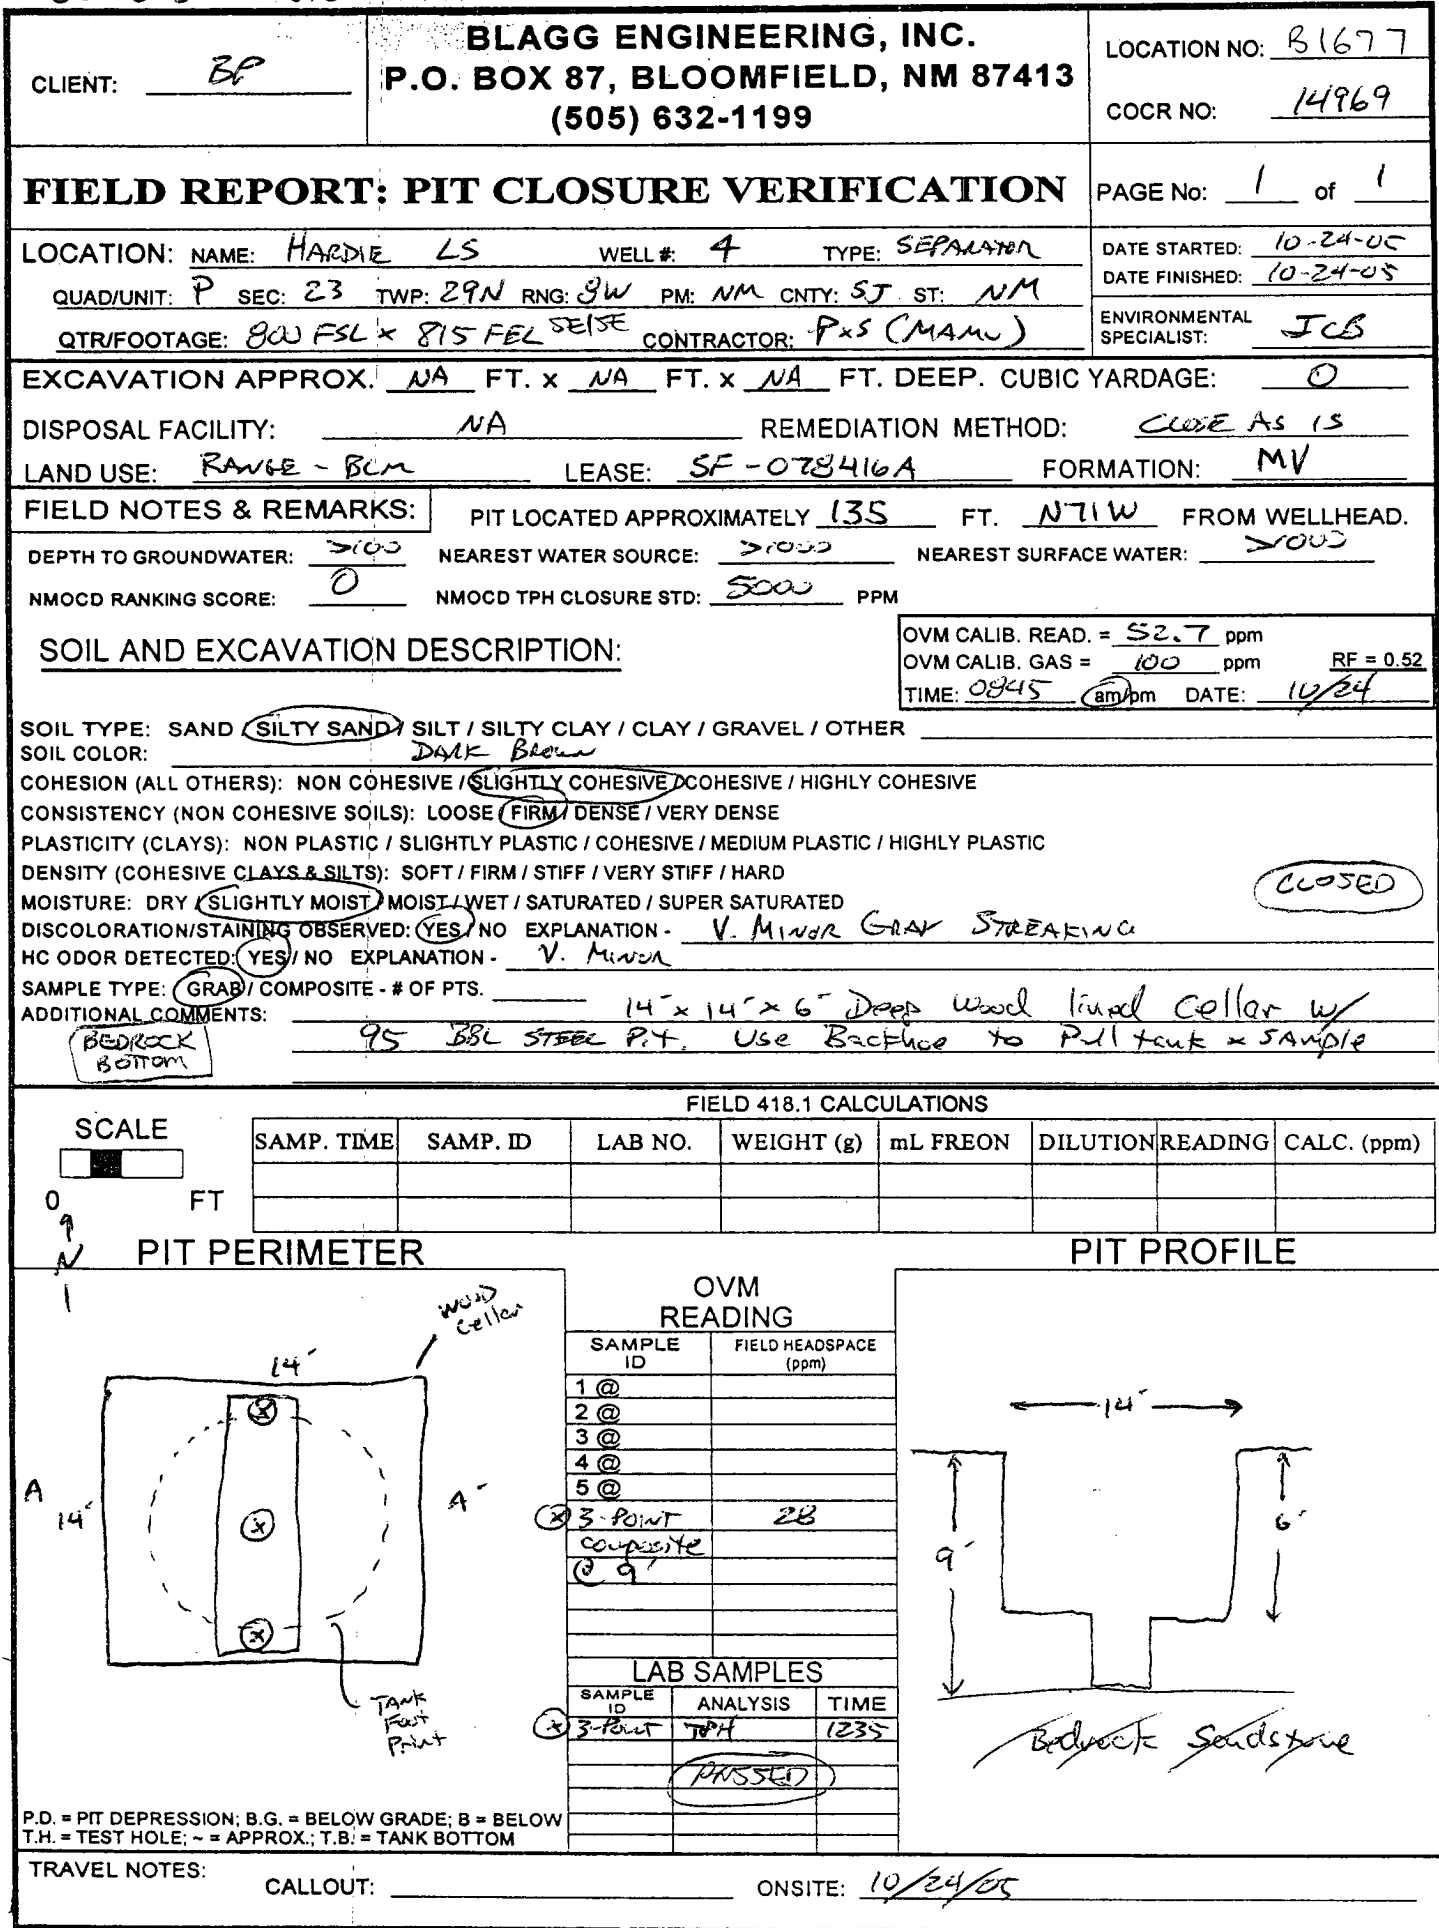 BLAGG ENGINEERING, INC.
P.O. BOX 87, BLOOMFIELD, NM 87413
(505) 632-1199
CLIENT: BP
LOCATION NO: B1677
COCR NO: 14969
FIELD REPORT: PIT CLOSURE VERIFICATION
PAGE No: 1 of 1
LOCATION: NAME: HARDIE LS WELL #: 4 TYPE: SEPARATOR
QUAD/UNIT: P SEC: 23 TWP: 29N RNG: 8W PM: NM CNTY: SJ ST: NM
QTR/FOOTAGE: 800 FSL x 815 FEL SE/SE CONTRACTOR: P x S (MAMU)
DATE STARTED: 10-24-05
DATE FINISHED: 10-24-05
ENVIRONMENTAL SPECIALIST: JCB
EXCAVATION APPROX. NA FT. x NA FT. x NA FT. DEEP. CUBIC YARDAGE: 0
DISPOSAL FACILITY: NA REMEDIATION METHOD: CLOSE AS IS
LAND USE: RANGE - BLM LEASE: SF-078416A FORMATION: MV
FIELD NOTES & REMARKS: PIT LOCATED APPROXIMATELY 135 FT. N71W FROM WELLHEAD.
DEPTH TO GROUNDWATER: >100 NEAREST WATER SOURCE: >1000 NEAREST SURFACE WATER: >1000
NMOCD RANKING SCORE: 0 NMOCD TPH CLOSURE STD: 5000 PPM
SOIL AND EXCAVATION DESCRIPTION:
OVM CALIB. READ. = 52.7 ppm
OVM CALIB. GAS = 100 ppm RF = 0.52
TIME: 0845 am/pm DATE: 10/24
SOIL TYPE: SAND / SILTY SAND / SILT / SILTY CLAY / CLAY / GRAVEL / OTHER
SOIL COLOR: DARK BROWN
COHESION (ALL OTHERS): NON COHESIVE / SLIGHTLY COHESIVE / COHESIVE / HIGHLY COHESIVE
CONSISTENCY (NON COHESIVE SOILS): LOOSE / FIRM / DENSE / VERY DENSE
PLASTICITY (CLAYS): NON PLASTIC / SLIGHTLY PLASTIC / COHESIVE / MEDIUM PLASTIC / HIGHLY PLASTIC
DENSITY (COHESIVE CLAYS & SILTS): SOFT / FIRM / STIFF / VERY STIFF / HARD
MOISTURE: DRY / SLIGHTLY MOIST / MOIST / WET / SATURATED / SUPER SATURATED
CLOSED
DISCOLORATION/STAINING OBSERVED: YES / NO EXPLANATION - V. MINOR GRAY STREAKING
HC ODOR DETECTED: YES / NO EXPLANATION - V. MINOR
SAMPLE TYPE: GRAB / COMPOSITE - # OF PTS.
ADDITIONAL COMMENTS: 14' x 14' x 6' Deep Wood lined Cellar w/
95 BBL STEEL Pit. Use Backhoe to Pull tank & SAMPLE
BEDROCK
BOTTOM
FIELD 418.1 CALCULATIONS
SCALE
0 FT
SAMP. TIME SAMP. ID LAB NO. WEIGHT (g) mL FREON DILUTION READING CALC. (ppm)
N
PIT PERIMETER
WOOD
Cellar
14'
A
14'
A'
TANK
Foot
Print
OVM
READING
SAMPLE ID FIELD HEADSPACE (ppm)
1 @
2 @
3 @
4 @
5 @
x 3-POINT 28
composite
@ 9'
LAB SAMPLES
SAMPLE ID ANALYSIS TIME
x 3-Point TPH 1235
PASSED
PIT PROFILE
14'
9'
6'
Bedrock Sandstone
P.D. = PIT DEPRESSION; B.G. = BELOW GRADE; B = BELOW
T.H. = TEST HOLE; ~ = APPROX.; T.B. = TANK BOTTOM
TRAVEL NOTES:
CALLOUT: ONSITE: 10/24/05